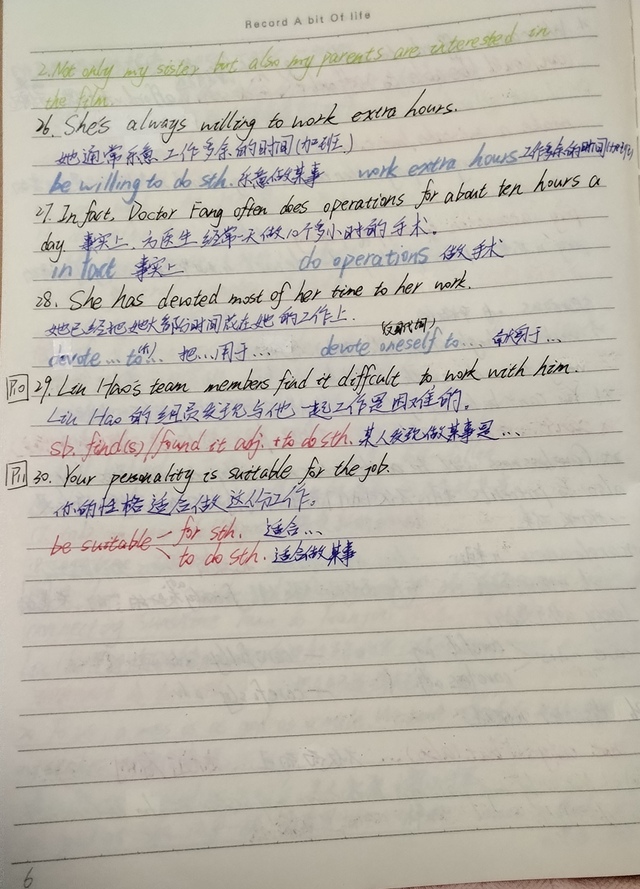 Record A bit Of life
2. Not only my sister but also my parents are interested in
the film.
26. She's always willing to work extra hours.
她通常乐意工作多余的时间(加班)
be willing to do sth. 乐意做某事 work extra hours 工作多余的时间
27. In fact, Doctor Fang often does operations for about ten hours a
day 事实上,方医生经常一天做10个多小时的手术。
in fact 事实上 do operations 做手术
28. She has devoted most of her time to her work.
她已经把她大部份时间放在她的工作上.
devote...to 把...用于... devote oneself to...
P10 29. Liu Hao's team members find it difficult to work with him.
Liu Hao的组员发现与他一起工作是困难的。
sb. find(s)/found it adj. to do sth. 某人发现做某事是...
P11 30. Your personality is suitable for the job.
你的性格适合做这份工作。
be suitable for sth. 适合...
to do sth. 适合做某事
6